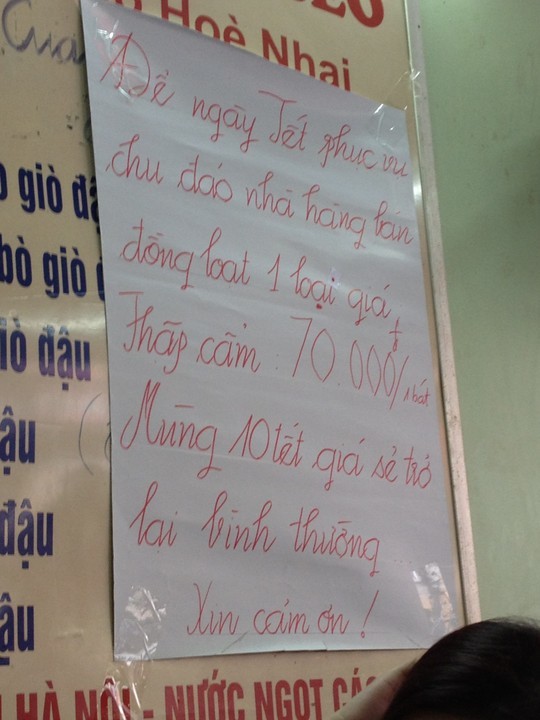 Hoè Nhai
Để ngày Tết phục vụ
chu đáo nhà hàng bán
đồng loạt 1 loại giá
Thập cẩm: 70.000đ/1 bát
Mùng 10 tết giá sẽ trở
lại bình thường...
Xin cảm ơn!
giò đậ
bò giò
iò đậu
ậu
đậu
ậu
HÀ NỘI - NƯỚC NGỌT CÁC